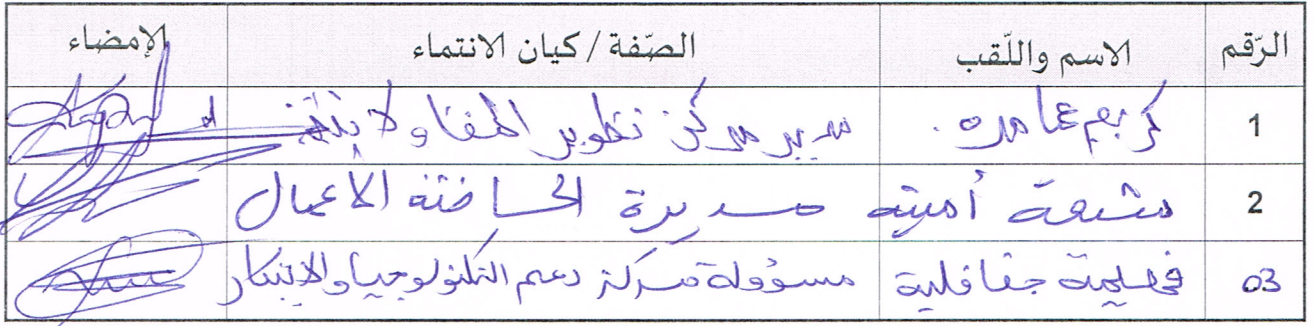 الرّقم الاسم واللّقب الصّفة / كيان الانتماء الإمضاء
1 كريم عمامره. مدير مركز تطوير المقاولاتية
2 مشعة أمينة مديرة الحاضنة الأعمال
03 فهيمة جفافلية مسؤولة مركز دعم التكنولوجيا والابتكار